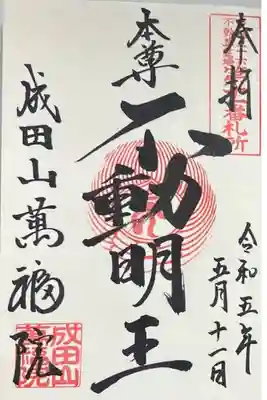 奉拝
令和五年
五月十一日
本尊
不動明王
成田山萬福院
成田山
萬福院